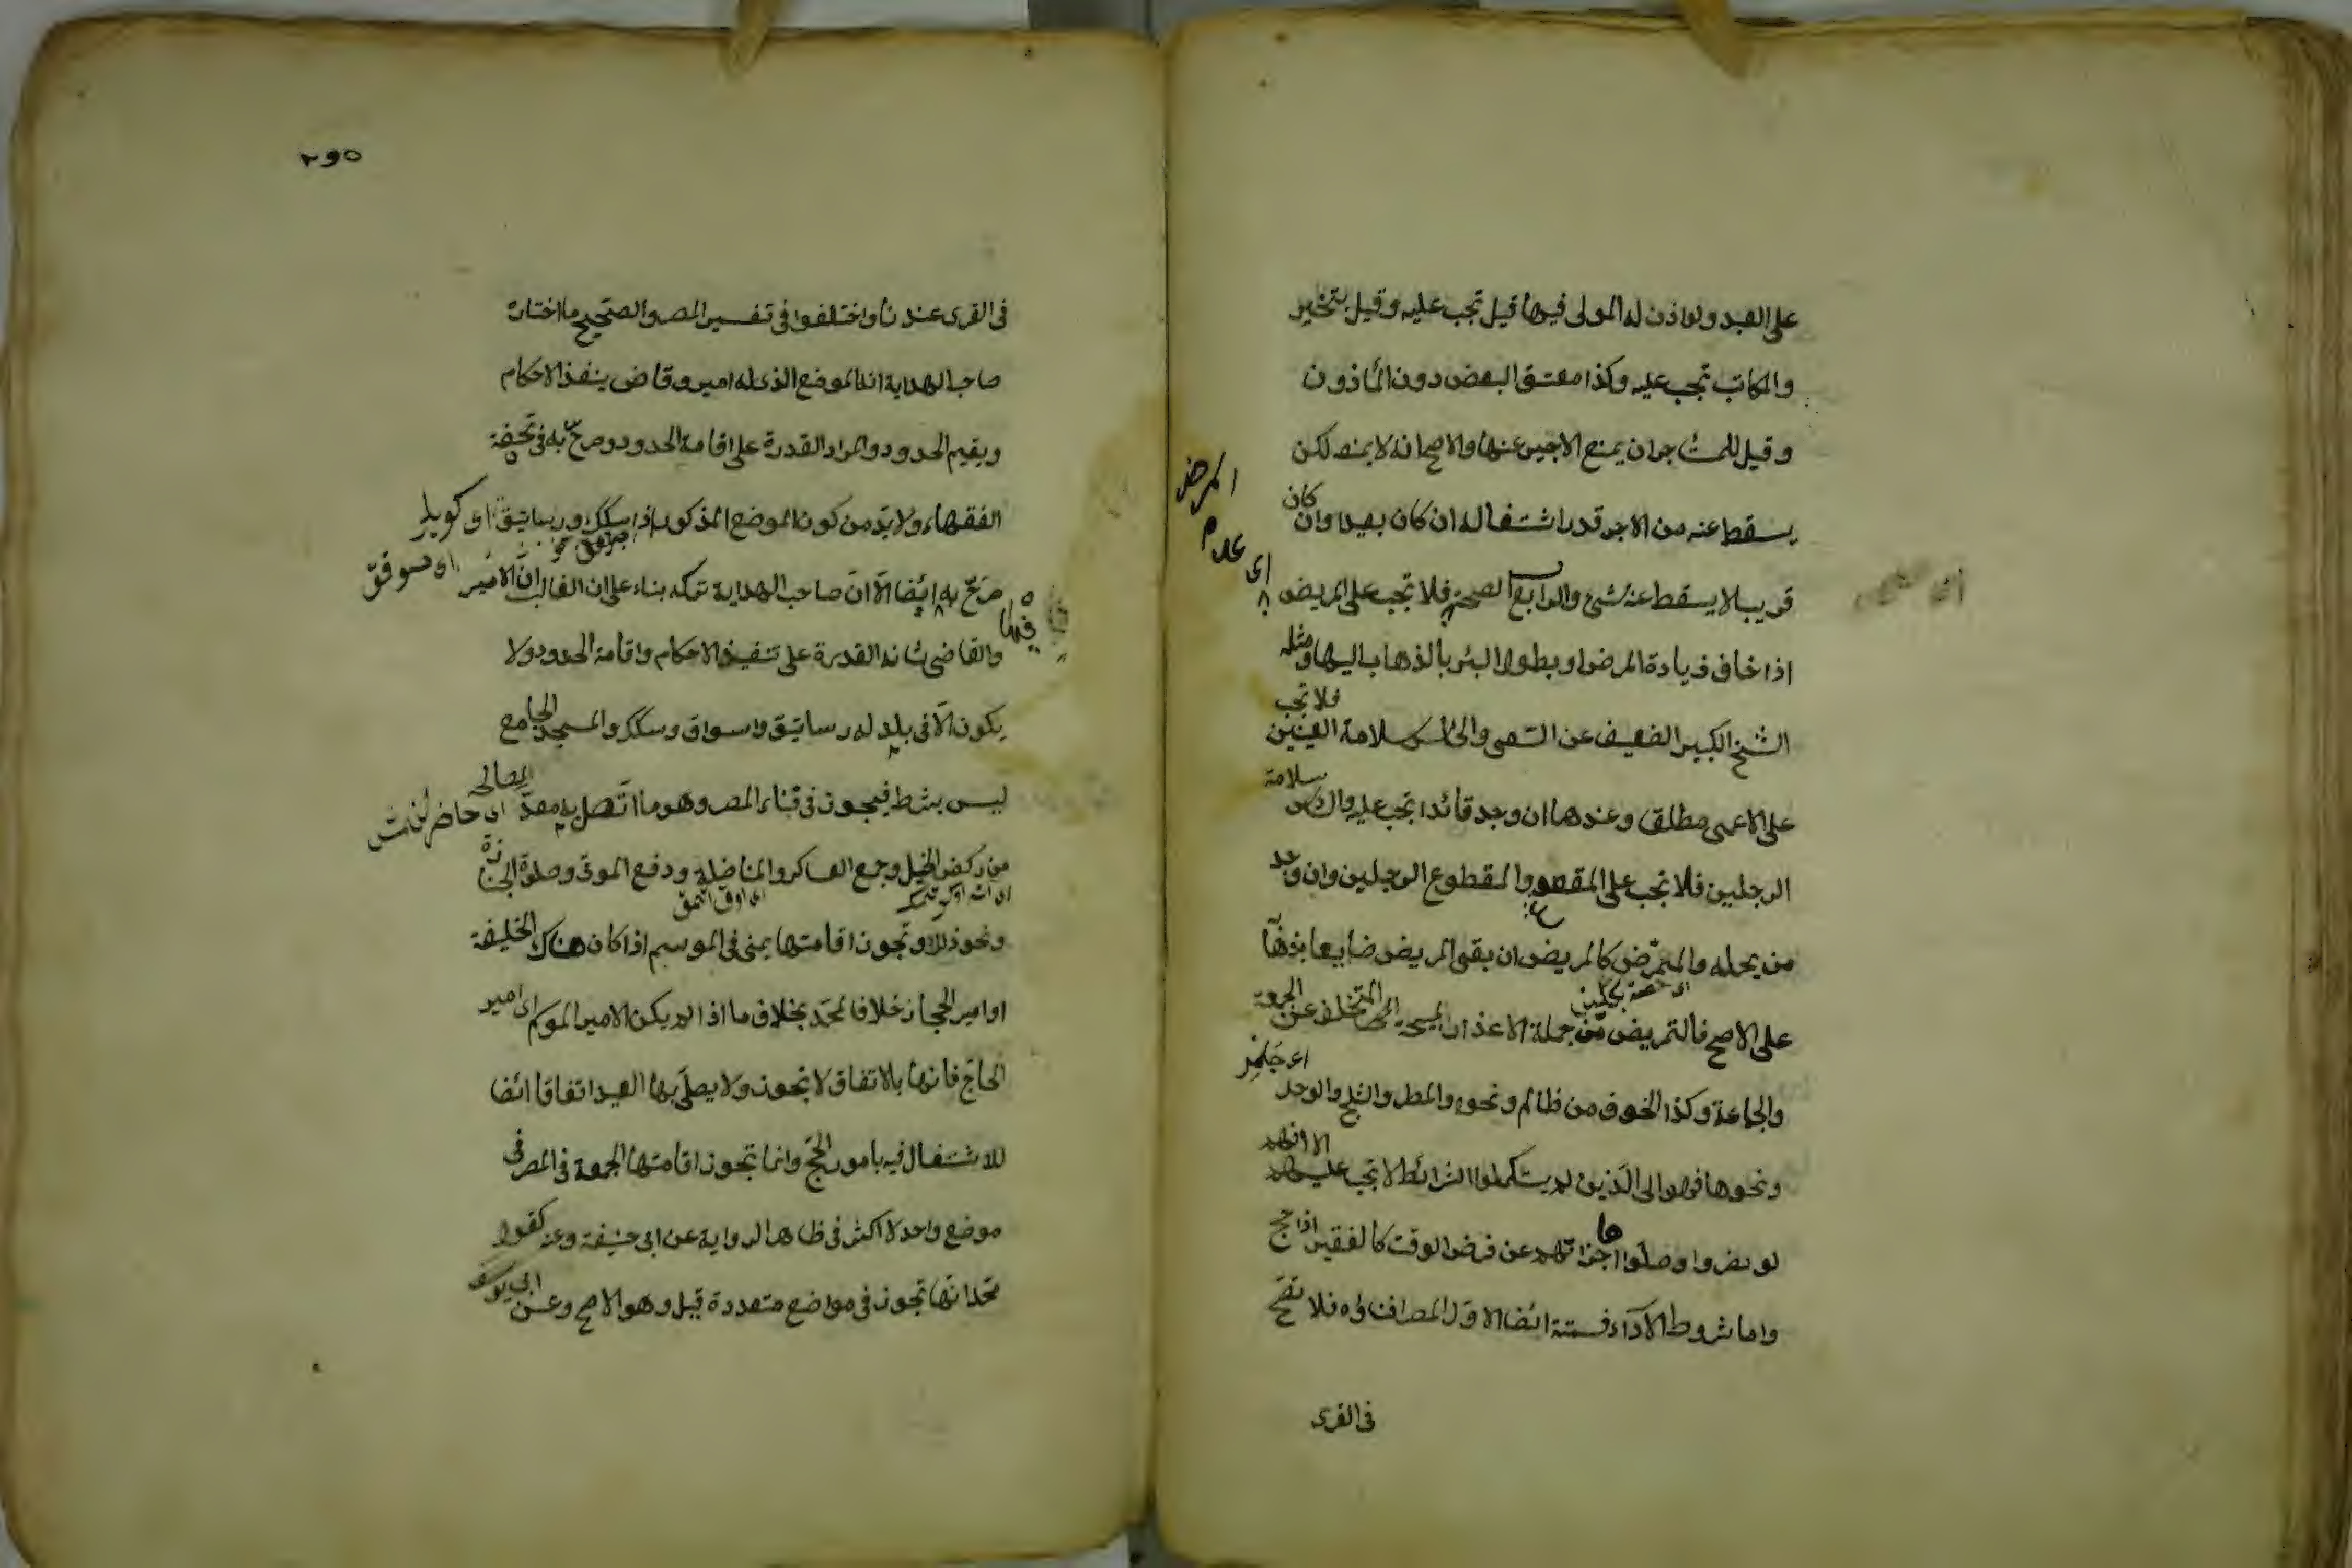 على العبد ولو اذن له المولى فيها قيل تجب عليه وقيل يتخير
والمكاتب تجب عليه وكذا معتق البعض دون المأذون
وقيل للمستأجر ان يمنع الاجير عنها والاصح انه لا يمنعه لكن
يسقط عنه من الاجر قدر اشتغاله ان كان بعيدا وان كان
قريبا لا يسقط عنه شئ والرابع الصحة فلا تجب على المريض
اى عدم المرض
اذا خاف زيادة المرض او بطوء البرء بالذهاب اليها ومثله
الشيخ الكبير الضعيف عن السعى والخامس سلامة العينين فلا تجب
على الاعمى مطلقا وعندهما ان وجد قائدا تجب عليه والسادس سلامة
الرجلين فلا تجب على المقعد والمقطوع الرجلين وان وجد
من يحمله والممرض كالمريض ان بقى المريض ضايعا بذهابه
على الاصح فالتمريض من جملة الاعذار المبيحة التخلف عن الجمعة
والجماعة وكذا الخوف من ظالم ونحوه والمطر والثلج والوحل
ونحوها فهؤلاء الذين لم يستكملوا الشرائط لا تجب عليهم الا انهم
لو حضروا وصلوا اجزأتهم عن فرض الوقت كالفقير اذا حج
واما شروط الاداء فستة ايضا الاول المصر او فناؤه فلا تصح
فى القرى
٢٩٥
فى القرى عندنا واختلفوا فى تفسير المصر والصحيح ما اختاره
صاحب الهداية انه الموضع الذى له امير وقاض ينفذ الاحكام
ويقيم الحدود والمراد القدرة على اقامة الحدود صرح به فى تحفة
الفقهاء ولا بد من كون الموضع المذكور ذا سكك ورساتيق اى كويلر
صرح به فيها ايضا الا ان صاحب الهداية تركه بناء على ان الغالب ان الامير
والقاضى شانه القدرة على تنفيذ الاحكام واقامة الحدود ولا
يكون الا فى بلد له رساتيق واسواق وسكك والمسجد الجامع
ليس بشرط فيجوز فى فناء المصر وهو ما اتصل به معدا لمصالحه
من ركض الخيل وجمع العساكر والمناضلة ودفع الموتى وصلوة الجنازة
ونحو ذلك وتجوز اقامتها بمنى فى الموسم اذا كان هناك الخليفة
او امير الحجاز خلافا لمحمد بخلاف ما اذا لم يكن الا امير الموسم
الحاج فانها بالاتفاق لا تجوز ولا يصلى بها العيد اتفاقا ايضا
للاشتغال فيه بامور الحج وانما تجوز اقامتها الجمعة فى المصر فى
موضع واحد لا اكثر فى ظاهر الرواية عن ابى حنيفة وعنه كقول
محمد انها تجوز فى مواضع متعددة قيل وهو الاصح وعن ابى يوسف